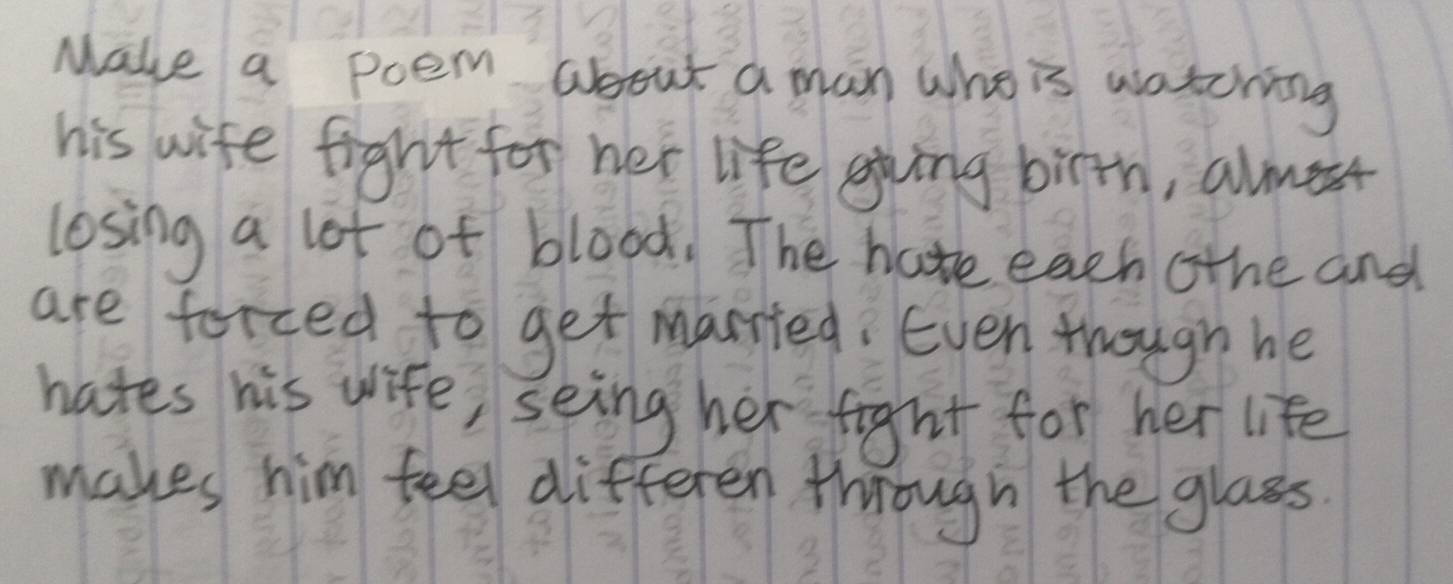 Make a poem about a man who is watching
his wife fight for her life giving birth, almost
losing a lot of blood. The hate each othe and
are forced to get married. Even though he
hates his wife, seing her fight for her life
makes him feel differen through the glass.